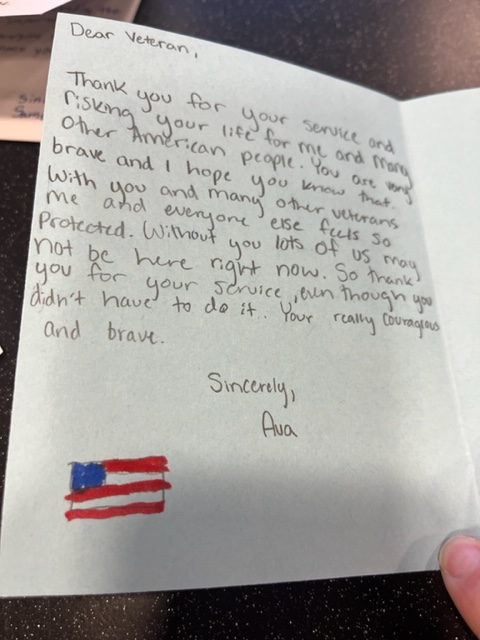 Dear Veteran,
Thank you for your service and
risking your life for me and many
other American people. You are very
brave and I hope you know that.
With you and many other veterans
me and everyone else feels so
Protected. Without you lots of us may
not be here right now. So thank
you for your service, even though you
didn't have to do it. Your really courageous
and brave.
Sincerely,
Ava